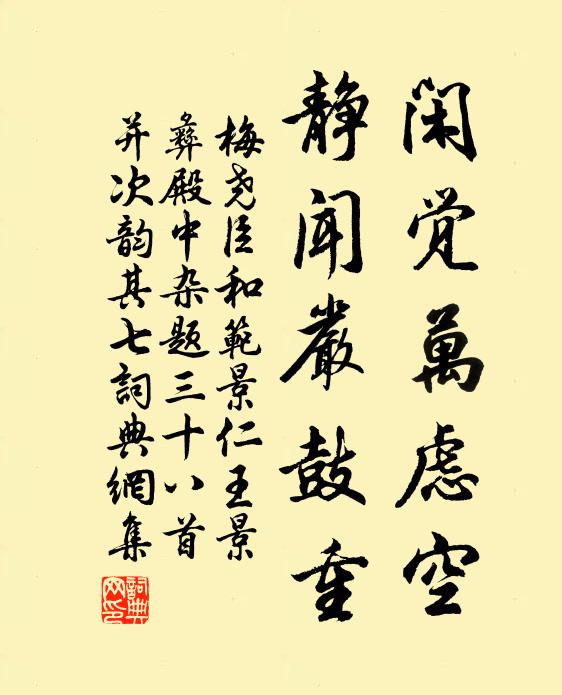 闲觉萬虑空
静闻嚴鼓重
梅尧臣和範景仁王景
彝殿中杂题三十八首
并次韵其七詞典網集
詞典网印